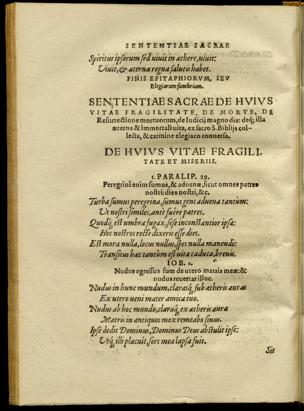 SENTENTIAE SACRAE
Spiritus ipsorum sed uiuit in æthere, uiuit:
Viuit, & æterna regna salutis habet.
FINIS EPITAPHIORVM, SEV
Elegiarum funebrium.
SENTENTIAE SACRAE DE HVIVS
VITAE FRAGILITATE, DE MORTE, DE
Resurrectione mortuorum, de Iudicij magno die: deq́; illa
æterna & immortali uita, ex sacro S. Biblijs col-
lecta, & carmine elegiaco conuersa.
DE HVIVS VITAE FRAGILI-
TATE ET MISERIIS.
1. PARALIP. 29.
Peregrini enim sumus, & aduenæ, sicut omnes patres
nostri: dies nostri, &c.
Turba sumus peregrina, sumus gens aduena tantum:
Vt nostri similes, ante fuêre patres.
Quodq́; est umbra fugax, sese inconstantior ipsa:
Hoc nostros rectè dixeris esse dies.
Est mora nulla, locus nullus, spes nulla manendi:
Transitus hæc tantum est uita caduca, breuis.
IOB. 1.
Nudus egressus sum de utero matris meæ: &
nudus reuertar illuc.
Nudus in hunc mundum, claraśq́; sub ætheris auras
Ex utero ueni mater amica tuo.
Nudus ab hoc mundo, claraśq́; ex ætheris aura
Matris in antiquos mox remeabo sinus.
Ipse dedit Dominus, Dominus Deus abstulit ipse:
Vtq́; illi placuit, sors mea lapsa fuit.
Sit